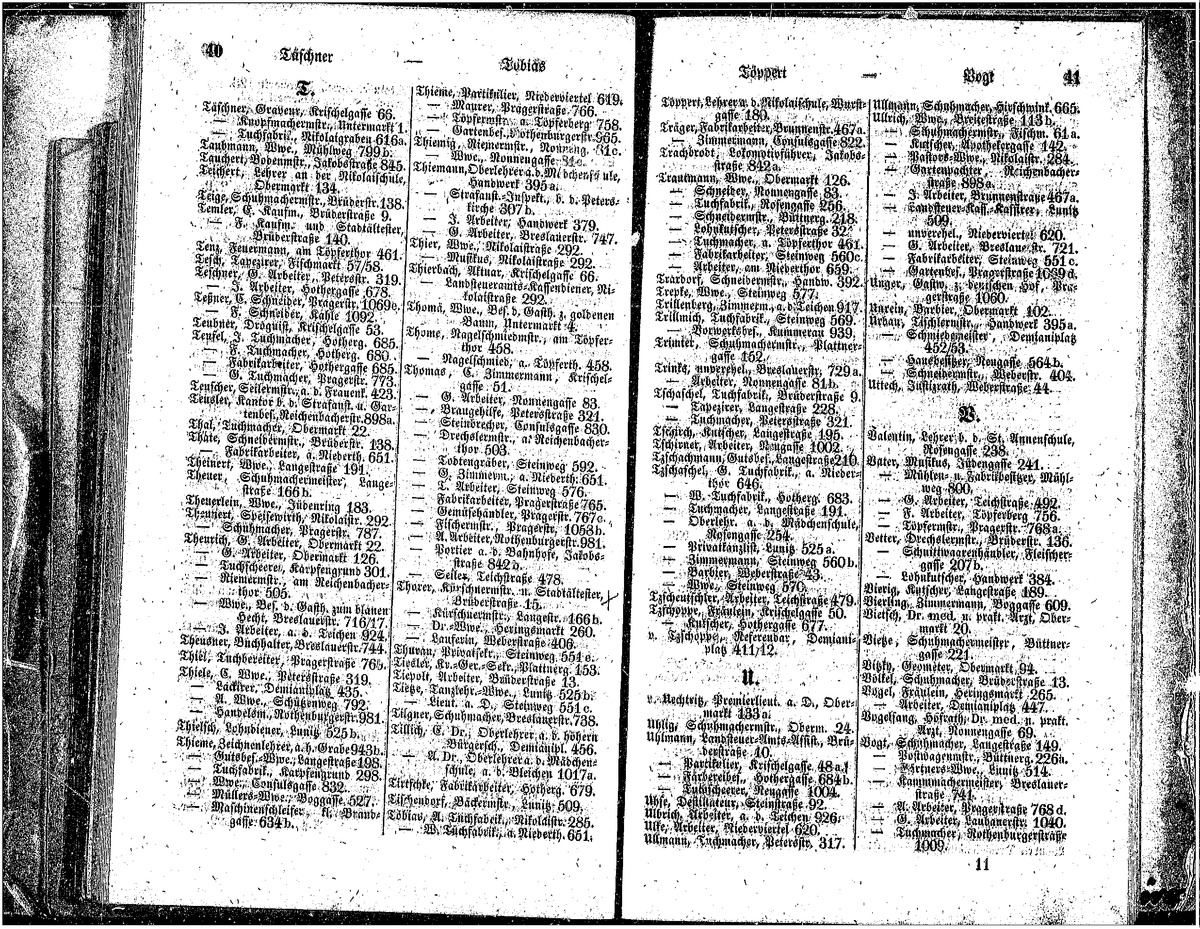 40 Täschner — Tobias
T.
Täschner, Graveur, Krischelgasse 66.
— Knopfmachermstr., Untermarkt 1.
— Tuchfabrik., Nikolaigraben 616a.
Taubmann, Wwe., Mühlweg 799b.
Tauchert, Bodenmstr., Jakobsstraße 845.
Teichert, Lehrer an der Nikolaischule,
Obermarkt 134.
Teige, Schuhmachermstr., Brüderstr. 138.
Temler, E. Kaufm., Brüderstraße 9.
— F. Kaufm. und Stadtältester,
Brüderstraße 140.
Tenz, Feuermann, am Töpferthor 461.
Tesch, Tapezirer, Fischmarkt 57/58.
Teschner, G. Arbeiter, Petersstr. 319.
— J. Arbeiter, Hothergasse 678.
Teßner, C. Schneider, Pragerstr. 1069e.
— F. Schneider, Kahle 1092.
Teubner, Droguist, Krischelgasse 53.
Teufel, J. Tuchmacher, Hotherg. 685.
— F. Tuchmacher, Hotherg. 680.
— Fabrikarbeiter, Hothergasse 685.
— G. Tuchmacher, Pragerstr. 773.
Teuscher, Seilermstr., a. d. Frauenk. 423.
Teusler, Kantor b. d. Strafanst. u. Gar-
tenbes., Reichenbacherstr. 898a.
Thal, Tuchmacher, Obermarkt 22.
Thäte, Schneidermstr., Brüderstr. 138.
— Fabrikarbeiter, a. Niederth. 651.
Theinert, Wwe., Langestraße 191.
Theuer, Schuhmachermeister, Lange-
straße 166b.
Theuerlein, Wwe., Jüdenring 183.
Theunert, Speisewirth, Nikolaistr. 292.
— Schuhmacher, Pragerstr. 787.
Theurich, G. Arbeiter, Obermarkt 22.
— G. Arbeiter, Obermarkt 126.
— Tuchscheerer, Karpfengrund 301.
— Riemermstr., am Reichenbacher-
thor 505.
— Wwe., Bes. d. Gasth. zum blauen
Hecht, Breslauerstr. 716/17.
— J. Arbeiter, a. d. Teichen 924.
Theusner, Buchhalter, Breslauerstr. 744.
Thiel, Tuchbereiter, Pragerstraße 765.
Thiele, C. Wwe., Petersstraße 319.
— Lackirer, Demianiplatz 435.
— A. Wwe., Schützenweg 792.
— Handelsm., Rothenburgerstr. 981.
Thielsch, Lohndiener, Lunitz 525b.
Thieme, Zeichnenlehrer, a. h. Grabe 943b.
— Gutsbes.-Wwe., Langestraße 198.
— Tuchfabrik., Karpfengrund 298.
— Wwe., Consulsgasse 832.
— Müllers-Wwe., Boggasse 527.
— Maschinenschleifer, kl. Brand-
gasse 634b.
Thieme, Partikulier, Niederviertel 619.
— Maurer, Pragerstraße 766.
— Töpfermstr. a. Töpferberg 758.
— Gartenbes., Rothenburgerstr. 965.
Thiemig, Riemermstr., Nonneng. 81c.
— Wwe., Nonnengasse 81c.
Thiemann, Oberlehrer a. d. Mädchenschule,
Handwerk 395a.
— Strafanst.-Inspekt., b. d. Peters-
kirche 307b.
— J. Arbeiter, Handwerk 379.
— G. Arbeiter, Breslauerstr. 747.
Thier, Wwe., Nikolaistraße 292.
— Musikus, Nikolaistraße 292.
Thierbach, Aktuar, Krischelgasse 66.
— Landsteueramts-Kassendiener, Ni-
kolaistraße 292.
Thomä, Wwe., Bes. d. Gasth. z. goldenen
Baum, Untermarkt 4.
Thome, Nagelschmiedmstr., am Töpfer-
thor 458.
— Nagelschmied, a. Töpferth. 458.
Thomas, C. Zimmermann, Krischel-
gasse 51.
— G. Arbeiter, Nonnengasse 83.
— Braugehilfe, Petersstraße 321.
— Steinbrecher, Consulsgasse 830.
— Drechslermstr., a. Reichenbacher-
thor 503.
— Todtengräber, Steinweg 592.
— G. Zimmerm., a. Niederth. 651.
— T. Arbeiter, Steinweg 576.
— Fabrikarbeiter, Pragerstraße 765.
— Gemüsehändler, Pragerstr. 767c.
— Fischermstr., Pragerstr. 1053b.
— A. Arbeiter, Rothenburgerstr. 981.
— Portier a. d. Bahnhofe, Jakobs-
straße 842b.
— Seiler, Teichstraße 478.
Thorer, Kürschnermstr. u. Stadtältester,
Brüderstraße 15.
— Kürschnermstr., Langestr. 166b.
— Dr.-Wwe., Heringsmarkt 260.
— Lauferin, Weberstraße 406.
Thurau, Privatsekr., Steinweg 551e.
Tiesler, Kr.-Ger.-Sekr., Plattnerg. 153.
Tiepolt, Arbeiter, Brüderstraße 13.
Tietze, Tanzlehr.-Wwe., Lunitz 525b.
— Lieut. a. D., Steinweg 551c.
Tilgner, Schuhmacher, Breslauerstr. 738.
Tillich, E. Dr., Oberlehrer a. d. höhern
Bürgersch., Demianipl. 456.
— A. Dr., Oberlehrer a. d. Mädchen-
schule, a. d. Bleichen 1017a.
Tirtschke, Fabrikarbeiter, Hotherg. 679.
Tischendorf, Bäckermstr., Lunitz 509.
Tobias, A. Tuchfabrik., Nikolaistr. 285.
— W. Tuchfabrik., a. Niederth. 651.
Töppert — Vogt 41
Töppert, Lehrer a. d. Nikolaischule, Wurst-
gasse 180.
Träger, Fabrikarbeiter, Brunnenstr. 467a.
— Zimmermann, Consulsgasse 822.
Trachbrodt, Lokomotivführer, Jakobs-
straße 842a.
Trautmann, Wwe., Obermarkt 126.
— Schneider, Nonnengasse 83.
— Tuchfabrik., Rosengasse 256.
— Schneidermstr., Büttnerg. 218.
— Lohnkutscher, Petersstraße 32.
— Tuchmacher, a. Töpferthor 461.
— Fabrikarbeiter, Steinweg 560c.
— Arbeiter, am Niederthor 659.
Trardorf, Schneidermstr., Handw. 392.
Trepke, Wwe., Steinweg 577.
Trillenberg, Zimmerm., a. d. Teichen 917.
Trillmich, Tuchfabrik., Steinweg 569.
— Vorwerksbes., Kummerau 939.
Trinier, Schuhmachermstr., Plattner-
gasse 152.
Trinks, unverehel., Breslauerstr. 729a.
— Arbeiter, Nonnengasse 81b.
Tschaschel, Tuchfabrik., Brüderstraße 9.
— Tapezirer, Langestraße 228.
— Tuchmacher, Petersstraße 321.
Tschirch, Kutscher, Langestraße 195.
Tschirner, Arbeiter, Neugasse 1002.
Tzschachmann, Gutsbes., Langestraße 210.
Tzschaschel, G. Tuchfabrik., a. Nieder-
thor 646.
— W. Tuchfabrik., Hotherg. 683.
— Tuchmacher, Langestraße 191.
— Oberlehr. a. d. Mädchenschule,
Rosengasse 254.
— Privatkanzlist, Lunitz 525a.
— Zimmermann, Steinweg 560b.
— Barbier, Weberstraße 43.
— Wwe., Steinweg 570.
Tzscheutschler, Arbeiter, Teichstraße 479.
Tzschoppe, Fräulein, Krischelgasse 50.
— Kutscher, Hothergasse 677.
v. Tzschoppe, Referendar, Demiani-
platz 411/12.
U.
v. Uechtritz, Premierlieut. a. D., Ober-
markt 133a.
Uhlig, Schuhmachermstr., Oberm. 24.
Uhlmann, Landsteuer-Amts-Assist., Brü-
derstraße 10.
— Partikulier, Krischelgasse 48a.
— Färbereibes., Hothergasse 684b.
— Tuchscheerer, Neugasse 1004.
Uhse, Destillateur, Steinstraße 92.
Ulbrich, Arbeiter, a. d. Teichen 926.
Ulke, Arbeiter, Niederviertel 620.
Ullmann, Tuchmacher, Petersstr. 317.
Ullmann, Schuhmacher, Hirschwink. 665.
Ullrich, Wwe., Breitestraße 113b.
— Schuhmachermstr., Fischm. 61a.
— Kutscher, Apothekergasse 142.
— Pastors-Wwe., Nikolaistr. 284.
— Gartenpächter, Reichenbacher-
straße 898a.
— J. Arbeiter, Brunnenstraße 467a.
— Landsteuer-Kass.-Kassirer, Lunitz
509.
— unverehel., Niederviertel 620.
— G. Arbeiter, Breslauerstr. 721.
— Fabrikarbeiter, Steinweg 551c.
— Gartenbes., Pragerstraße 1069d.
Unger, Gastw. z. deutschen Hof, Pra-
gerstraße 1060.
Unrein, Barbier, Obermarkt 102.
Urban, Tischlermstr., Handwerk 395a.
— Schmiedemeister, Demianiplatz
452/53.
— Hausbesitzer, Neugasse 564b.
— Schneidermstr., Weberstr. 404.
Uttech, Justizrath, Weberstraße 44.
V.
Valentin, Lehrer b. d. St. Annenschule,
Rosengasse 238.
Vater, Musikus, Jüdengasse 241.
— Mühlen- u. Fabrikbesitzer, Mühl-
weg 800.
— G. Arbeiter, Teichstraße 492.
— F. Arbeiter, Töpferberg 756.
— Töpfermstr., Pragerstr. 768a.
Vetter, Drechslermstr., Brüderstr. 136.
— Schnittwaarenhändler, Fleischer-
gasse 207b.
— Lohnkutscher, Handwerk 384.
Vierig, Kutscher, Langestraße 189.
Vierling, Zimmermann, Boggasse 609.
Vietsch, Dr. med. u. prakt. Arzt, Ober-
markt 20.
Vietze, Schuhmachermeister, Büttner-
gasse 221.
Vitzky, Geometer, Obermarkt 94.
Völkel, Schuhmacher, Brüderstraße 13.
Vogel, Fräulein, Heringsmarkt 265.
— Arbeiter, Demianiplatz 447.
Vogelsang, Hofrath, Dr. med. u. prakt.
Arzt, Nonnengasse 69.
Vogt, Schuhmacher, Langestraße 149.
— Postwagenmstr., Büttnerg. 226a.
— Gärtners-Wwe., Lunitz 514.
— Kammmachermeister, Breslauer-
straße 741.
— A. Arbeiter, Pragerstraße 768d.
— G. Arbeiter, Laubanerstr. 1040.
— Tuchmacher, Rothenburgerstraße
1009.
11